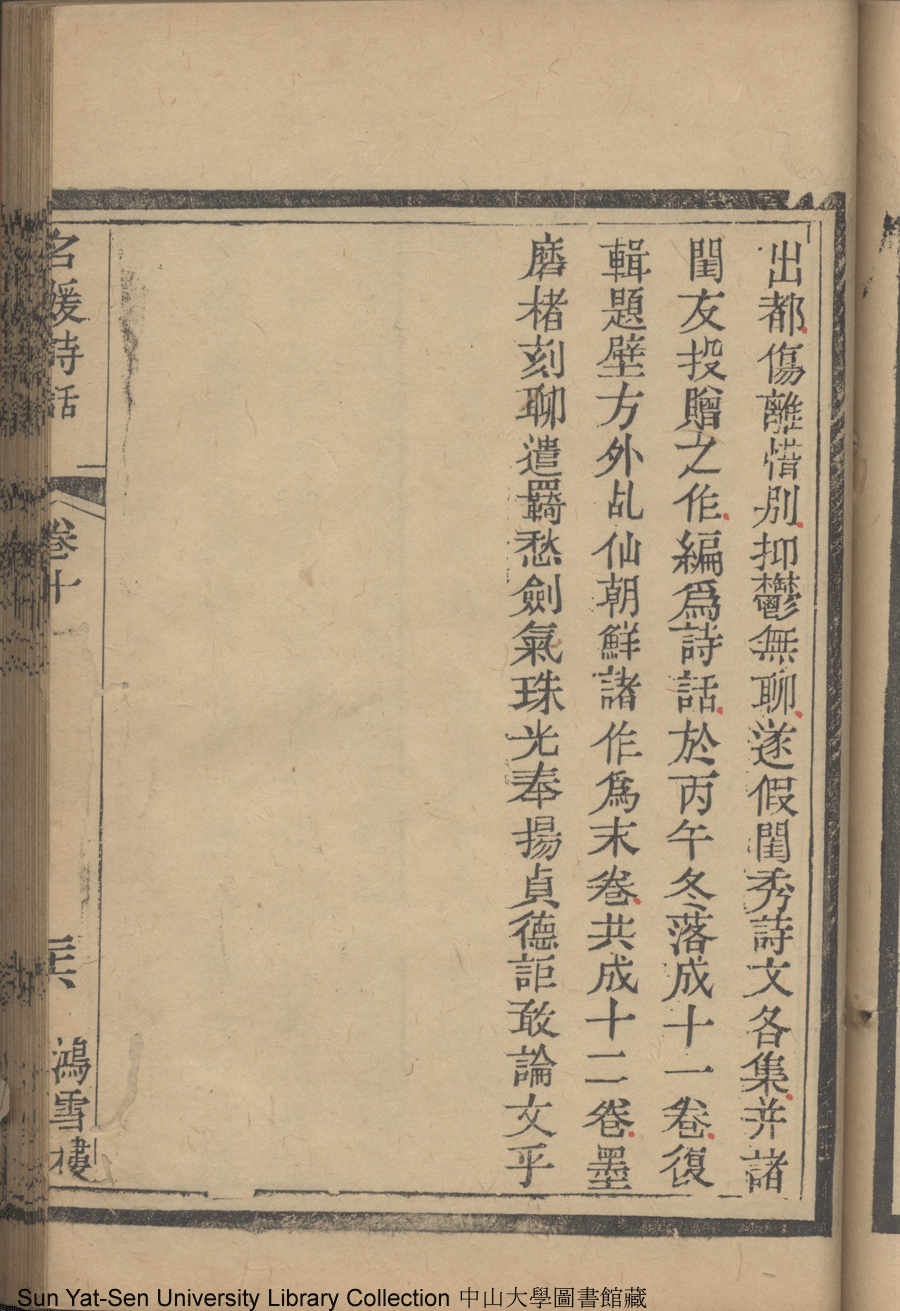 出都傷離惜別抑鬱無聊遂假閨秀詩文各集并諸
閨友投贈之作編爲詩話於丙午冬落成十一卷復
輯題壁方外乩仙朝鮮諸作爲末卷共成十二卷墨
磨楮刻聊遣羇愁劍氣珠光奉揚貞德詎敢論文乎
名媛詩話
卷十一
鴻雪樓
Sun Yat-Sen University Library Collection 中山大學圖書館藏